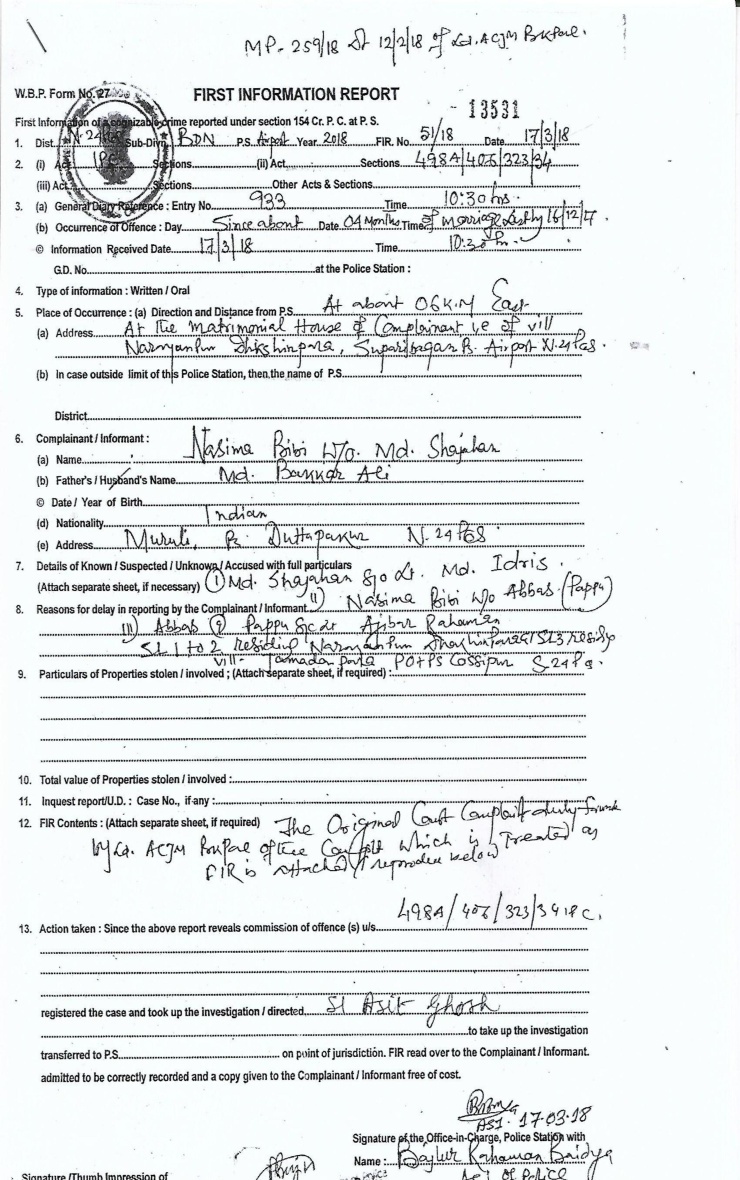 MP-259/18 Dt 12/2/18 of Ld. ACJM BKPore.
W.B.P. Form No. 27
FIRST INFORMATION REPORT
- 13531
First Information of a cognizable crime reported under section 154 Cr. P. C. at P. S.
1. Dist. N. 24 Sub-Divn. BDN P.S. Airport Year 2018 FIR. No. 51/18 Date 17/3/18
2. (i) Act IPC Sections (ii) Act Sections 498A/406/323/34
(iii) Act Sections Other Acts & Sections
3. (a) General Diary Reference : Entry No. 933 Time 10:30 hrs.
(b) Occurrence of Offence : Day Since about Date 04 Months Time of Marriage Lastly 16/12/17
© Information Received Date 17/3/18 Time 10:30
G.D. No. at the Police Station :
4. Type of information : Written / Oral
5. Place of Occurrence : (a) Direction and Distance from P.S. At about 06 K.M East
(a) Address At the Matrimonial House of Complainant i,e of vill
Narayanpur Dakshinpara, Airport N. 24 Pgs.
(b) In case outside limit of this Police Station, then the name of P.S.
District
6. Complainant / Informant :
(a) Name Nasima Bibi W/o. Md. Shajahan
(b) Father's / Husband's Name Md. Bakkar Ali
© Date / Year of Birth
(d) Nationality Indian
(e) Address Murali, Ps. Duttapukur N. 24 PGS
7. Details of Known / Suspected / Unknown / Accused with full particulars
(Attach separate sheet, if necessary) (1) Md. Shajahan S/o Lt. Md. Idris.
11) Nasima Bibi W/o Abbas (Pappu)
8. Reasons for delay in reporting by the Complainant / Informant
111) Abbas @ Pappu Rahaman
SL 1 to 2 residing Narayanpur
vill- PO+PS Cossipur S. 24 Pgs.
9. Particulars of Properties stolen / involved ; (Attach separate sheet, if required) :
10. Total value of Properties stolen / involved :
11. Inquest report/U.D. : Case No., if any :
12. FIR Contents : (Attach separate sheet, if required) The Original Court Complaint duly
by Ld. ACJM BKPore which is treated as
FIR is attached / reproduce below
13. Action taken : Since the above report reveals commission of offence (s) u/s. 498A/406/323/34 IPC.
registered the case and took up the investigation / directed SI Asit Ghosh
to take up the investigation
transferred to P.S. on point of jurisdiction. FIR read over to the Complainant / Informant.
admitted to be correctly recorded and a copy given to the Complainant / Informant free of cost.
ASI. 17-03-18
Signature of the Office-in-Charge, Police Station with
Name : Bazlur Rahaman Baidya
Signature /Thumb Impression of
of Police